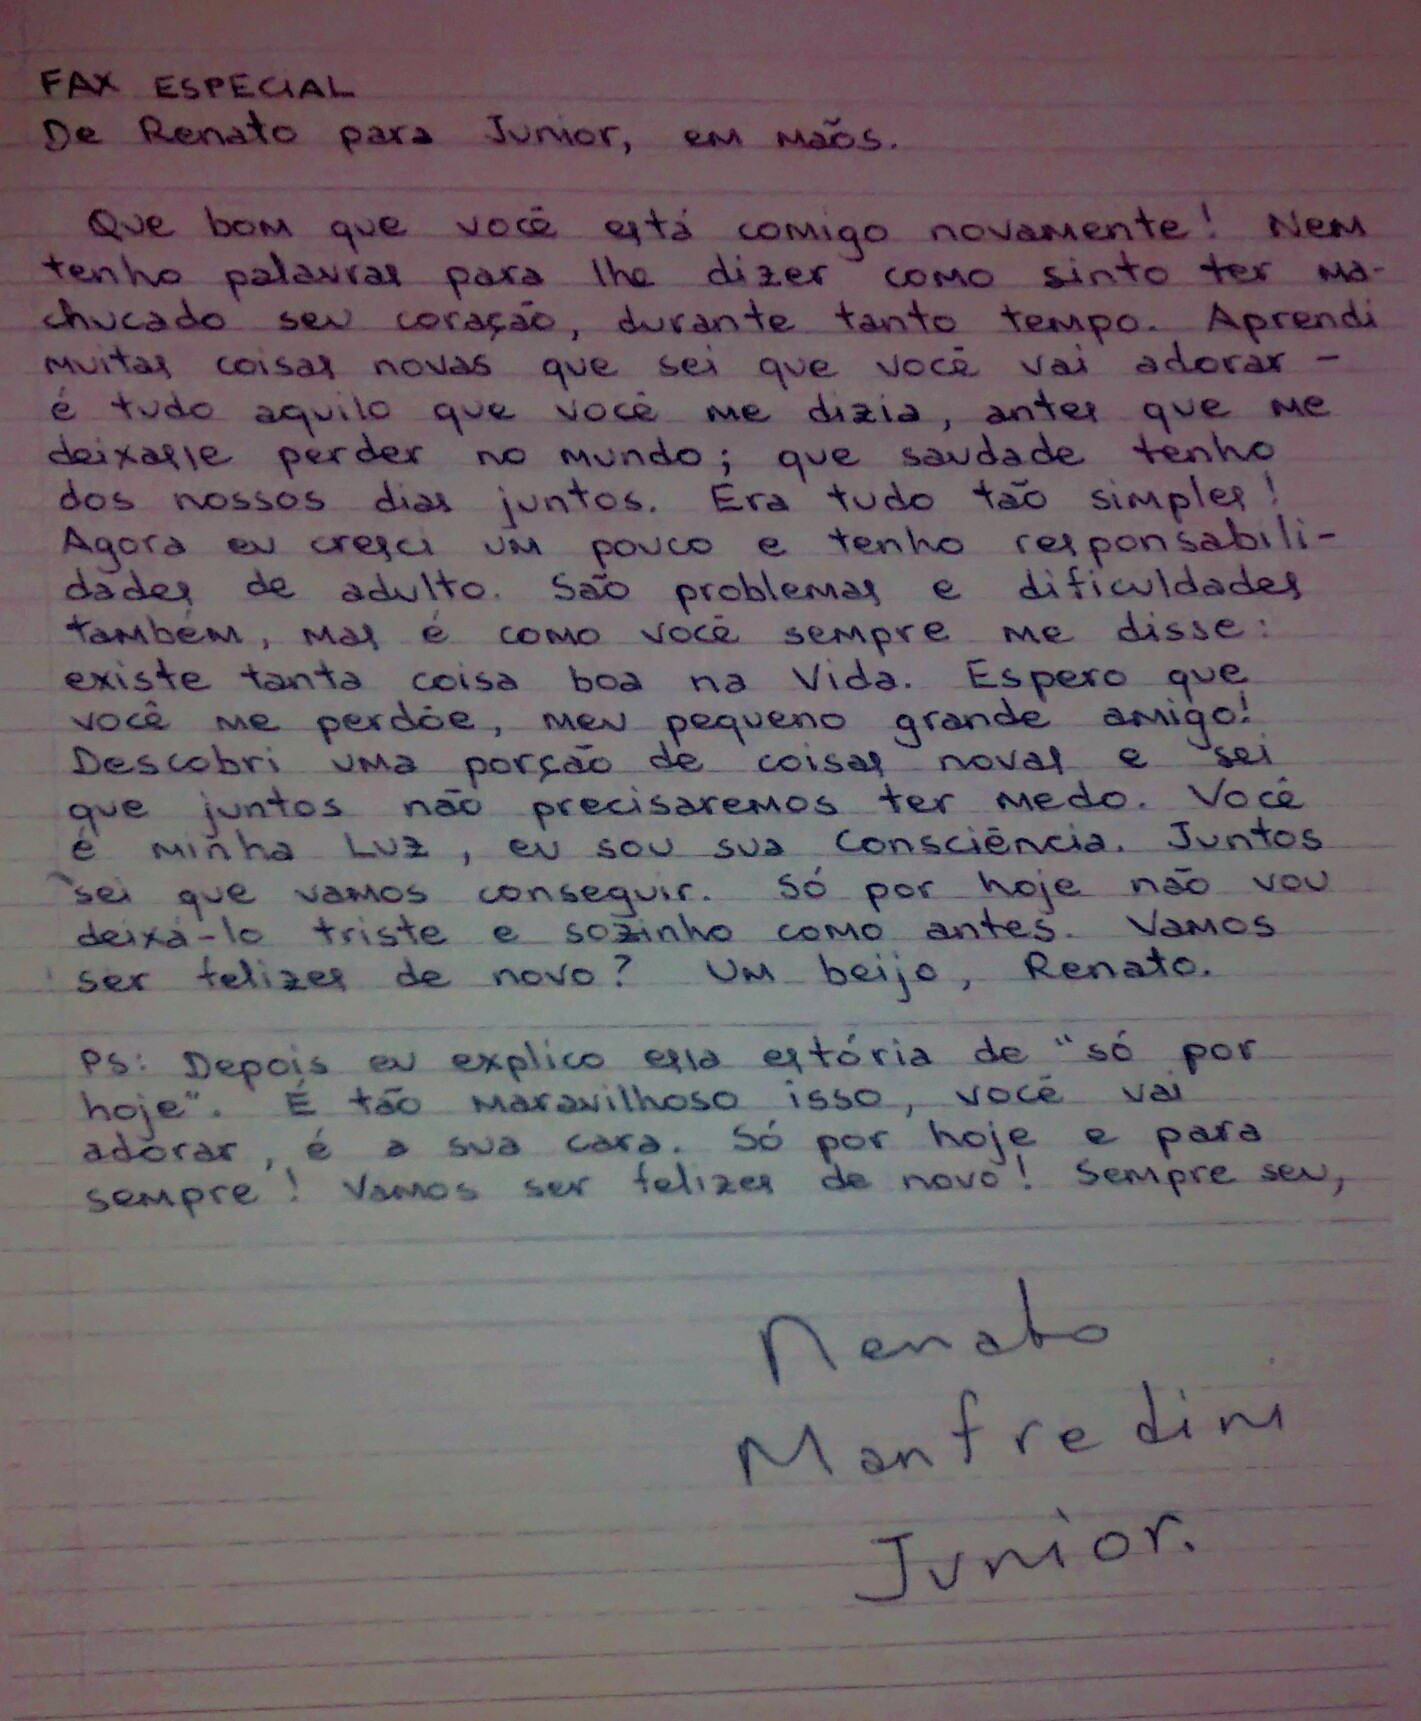 FAX ESPECIAL
De Renato para Junior, em mãos.
Que bom que você está comigo novamente! Nem
tenho palavras para lhe dizer como sinto ter ma-
chucado seu coração, durante tanto tempo. Aprendi
muitas coisas novas que sei que você vai adorar -
é tudo aquilo que você me dizia, antes que me
deixasse perder no mundo; que saudade tenho
dos nossos dias juntos. Era tudo tão simples!
Agora eu cresci um pouco e tenho responsabili-
dades de adulto. São problemas e dificuldades
também, mas é como você sempre me disse:
existe tanta coisa boa na Vida. Espero que
você me perdõe, meu pequeno grande amigo!
Descobri uma porção de coisas novas e sei
que juntos não precisaremos ter medo. Você
é minha Luz, eu sou sua Consciência. Juntos
sei que vamos conseguir. Só por hoje não vou
deixá-lo triste e sozinho como antes. Vamos
ser felizes de novo? Um beijo, Renato.
PS: Depois eu explico essa estória de "só por
hoje". É tão maravilhoso isso, você vai
adorar, é a sua cara. Só por hoje e para
sempre! Vamos ser felizes de novo! Sempre seu,
Renato
Manfredini
Junior.